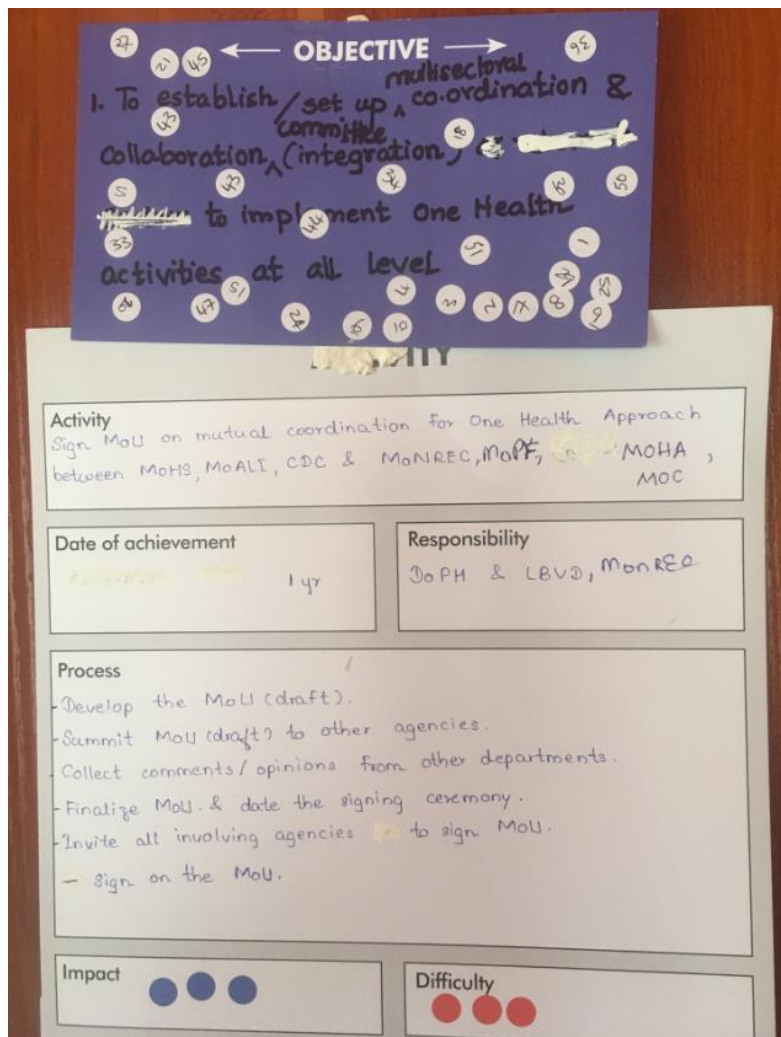 ← OBJECTIVE →
multisectoral
1. To establish / set up ^ co.ordination &
committee
collaboration ^ (integration)
to implement One Health
activities at all level
Activity
Sign MoU on mutual coordination for One Health Approach
between MOHS, MOALI, CDC & MONREC, MOPF, MOHA,
MOC
Date of achievement
1 yr
Responsibility
DoPH & LBVD, MONREC
Process
- Develop the MoU (draft).
- Summit MoU (draft) to other agencies.
- Collect comments / opinions from other departments.
- Finalize MoU. & date the signing ceremony.
- Invite all involving agencies to sign MoU.
- Sign on the MoU.
Impact
Difficulty